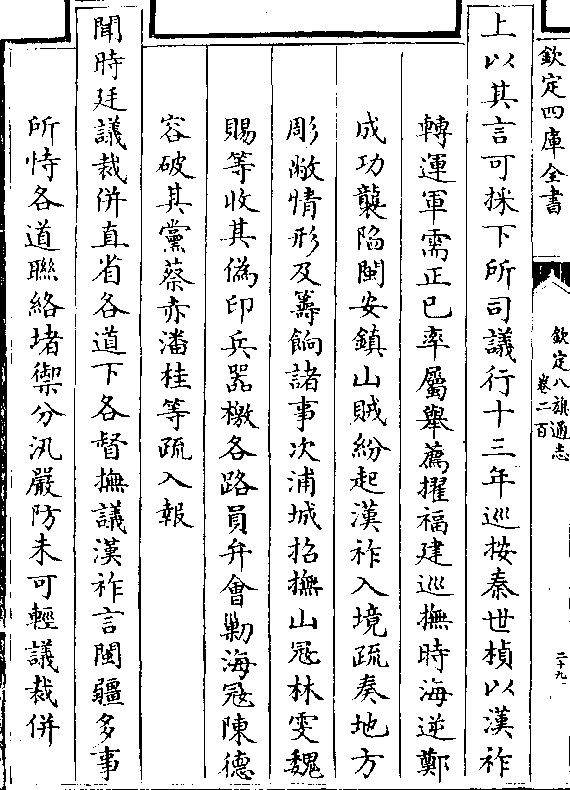 欽定四庫全書
欽定八旗通志
卷二百
二十九
上以其言可採下所司議行十三年巡按秦世楨以漢祚
轉運軍需正已率屬舉薦擢福建巡撫時海逆鄭
成功襲陷閩安鎮山賊紛起漢祚入境疏奏地方
彫敝情形及籌餉諸事次浦城招撫山冦林雯魏
賜等收其偽印兵器檄各路員弁會勦海冦陳德
容破其黨蔡赤潘桂等疏入報
聞時廷議裁併直省各道下各督撫議漢祚言閩疆多事
所恃各道聯絡堵禦分汛嚴防未可輕議裁併